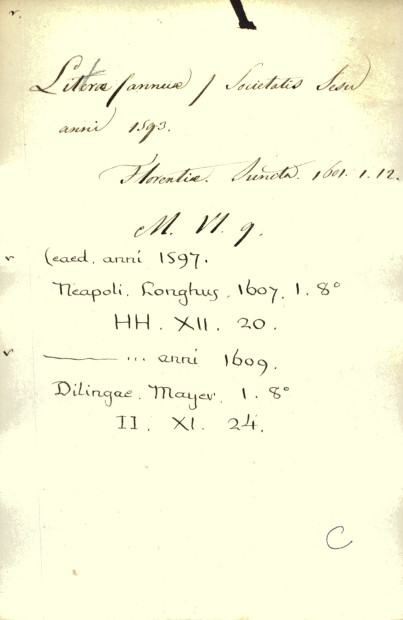 Litterae (annuae) Societatis Jesu
anni 1593.
Florentiae. Juncta. 1601. 1. 12.
M. VI. 9.
(eaed. anni 1597.
Neapoli. Longhus. 1607. 1. 8°
HH. XII. 20.
——— ... anni 1609.
Dilingae. Mayer. 1. 8°
II. XI. 24.
C